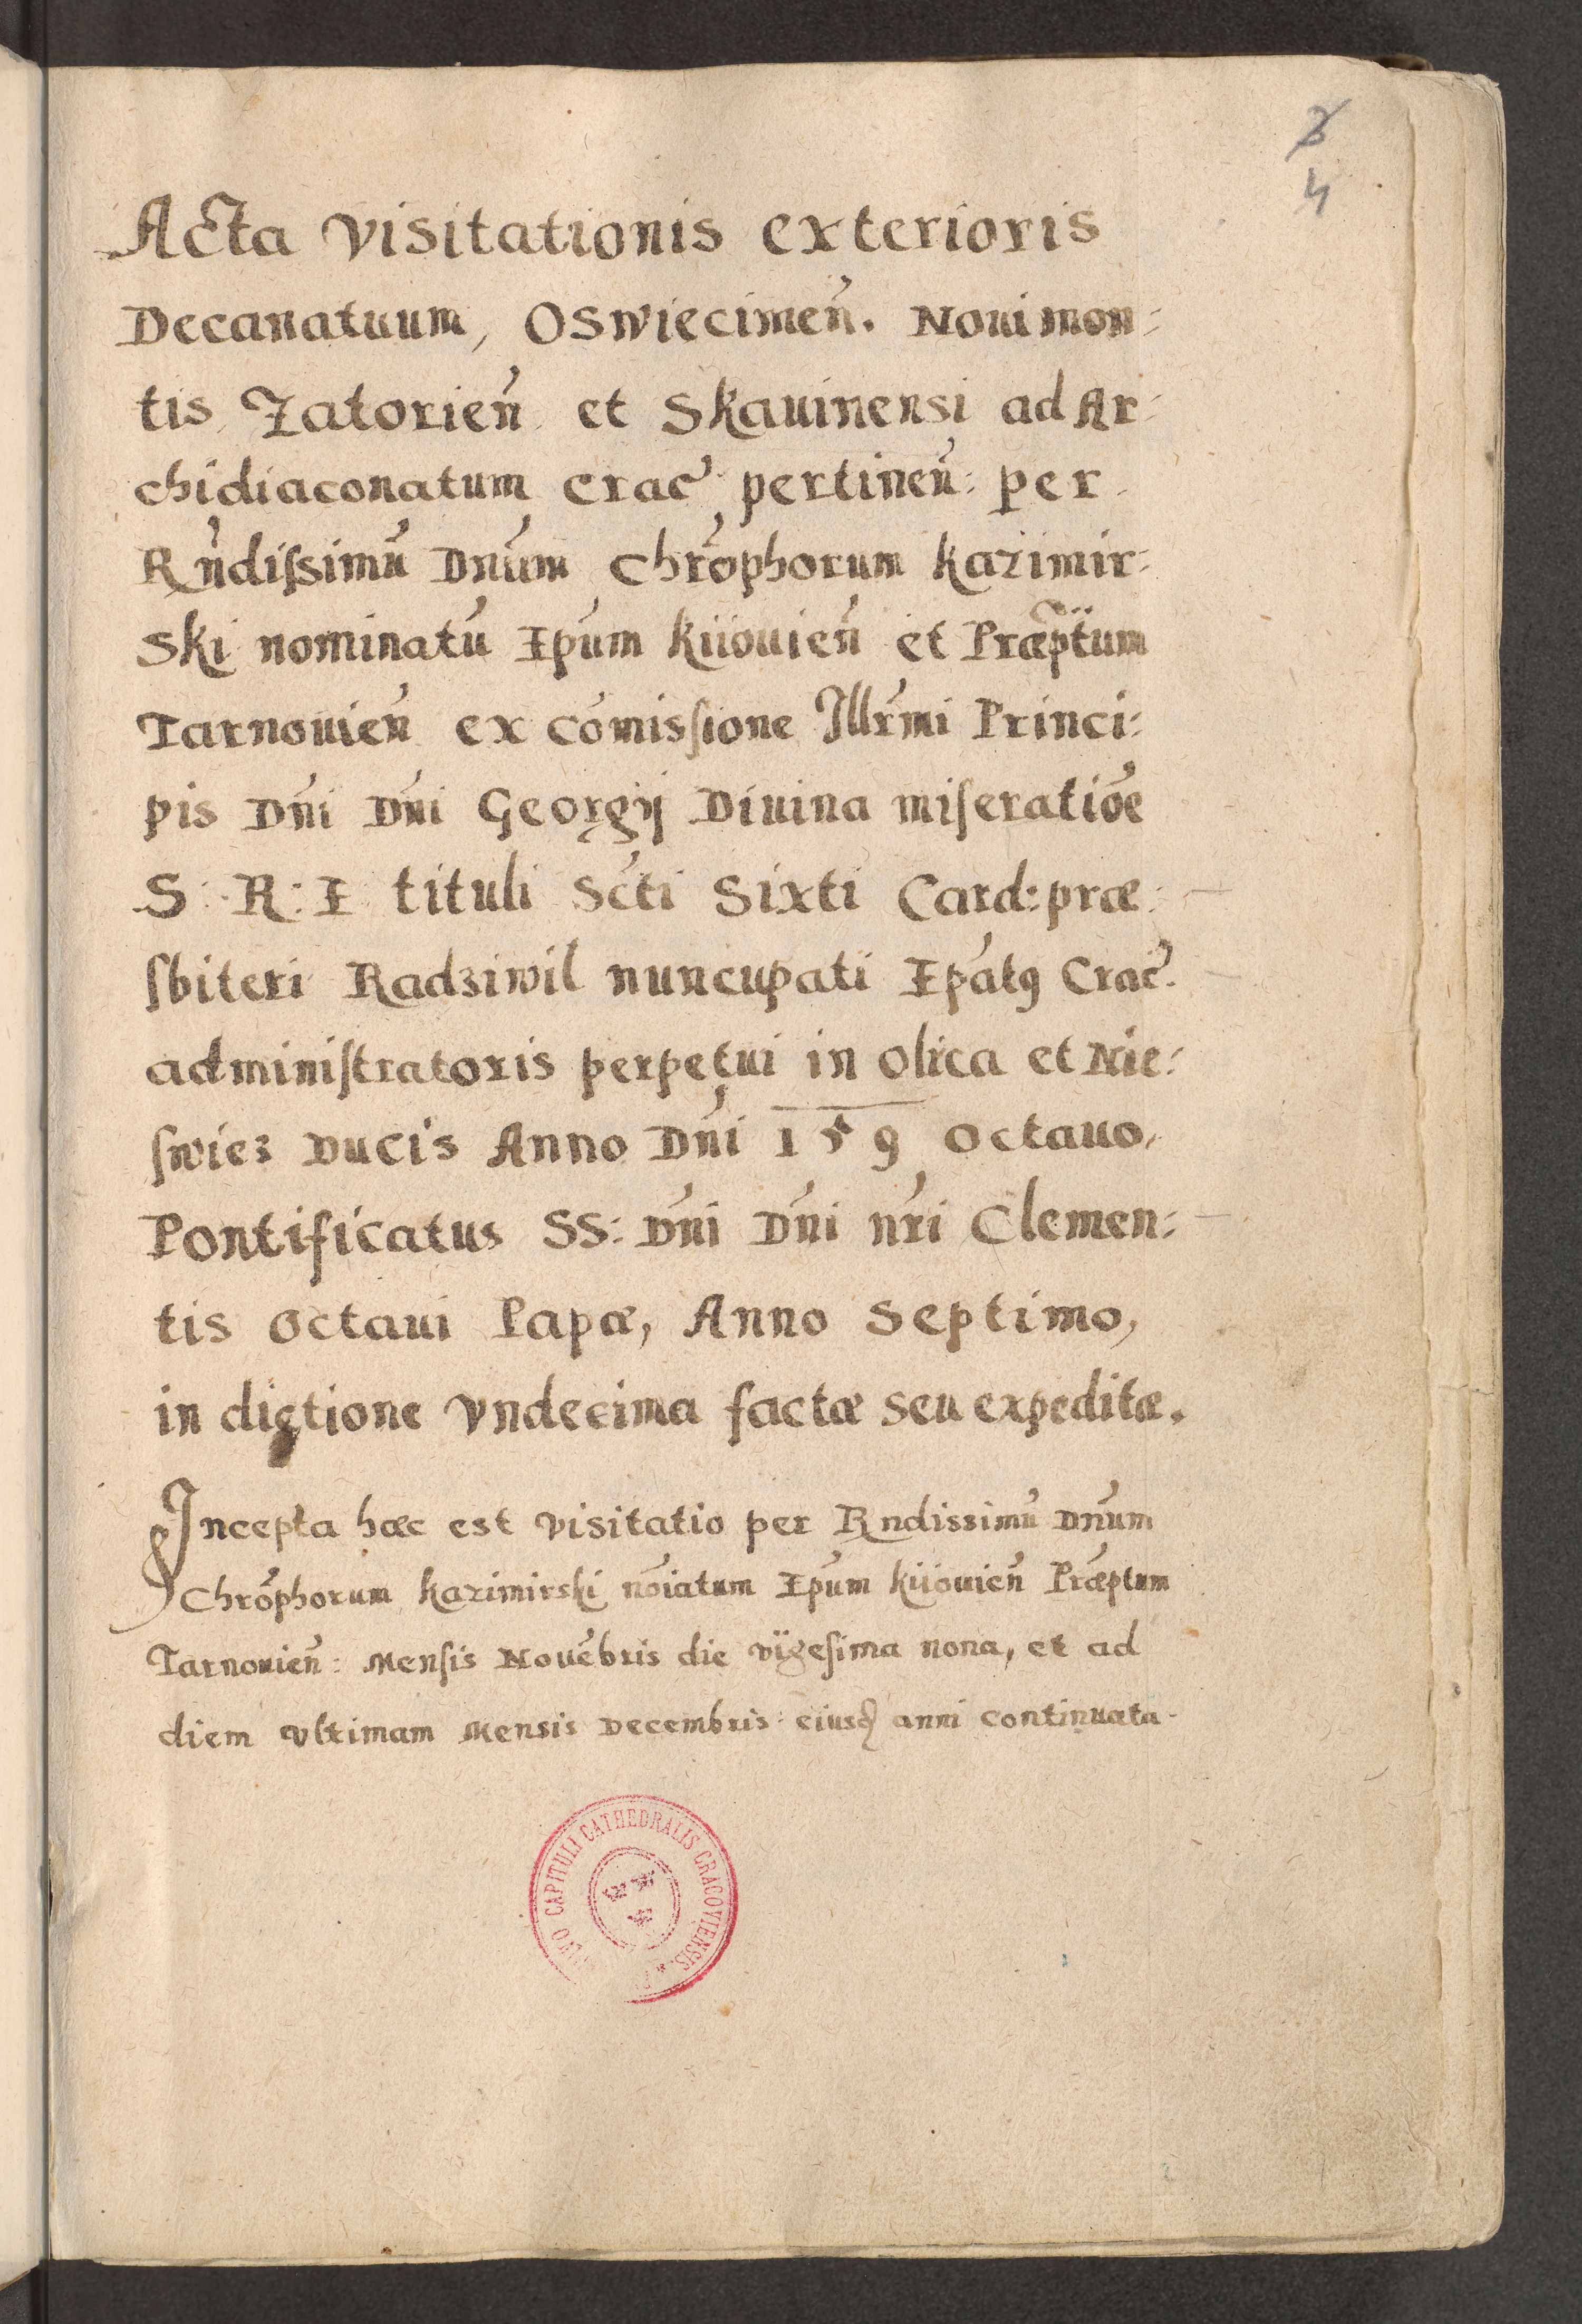 3
4
Acta Visitationis exterioris
Decanatuum, Oswiecimen̄. Noui mon:
tis Zatorien̄ et Skauinensi ad Ar:
chidiaconatum Crac̄ pertinen̄: per
Rn̄dissimū Dn̄um Chrōphorum Kazimir:
ski nominatū Ep̄um Kiiouien̄ et Præp̄tum
Tarnouien̄ ex cōmissione Illr̄mi Princi:
pis Dn̄i Dn̄i Georgij Diuina miseratiōe
S: R: E tituli Sc̄ti Sixti Card: præ:
sbiteri Radziwil nuncupati Ep̄atꝰ Crac̄.
administratoris perpetui in Olica et Nie:
swiez Ducis Anno Dn̄i 159 octauo,
Pontificatus SS: Dn̄i Dn̄i nr̄i Clemen:
tis Octaui Papæ, Anno Septimo,
in dictione Vndecima factæ seu expeditæ.
Incepta hæc est Visitatio per Rndissimū Dn̄um
Chrōphorum Kazimirski nōiatum Ep̄um Kiiouien̄ Præp̄tum
Tarnouien̄: Mensis Nouēbris die vigesima nona, et ad
diem Vltimam Mensis Decembris eiusd anni continuata.
CAPITULI CATHEDRALIS CRACOVIENSIS